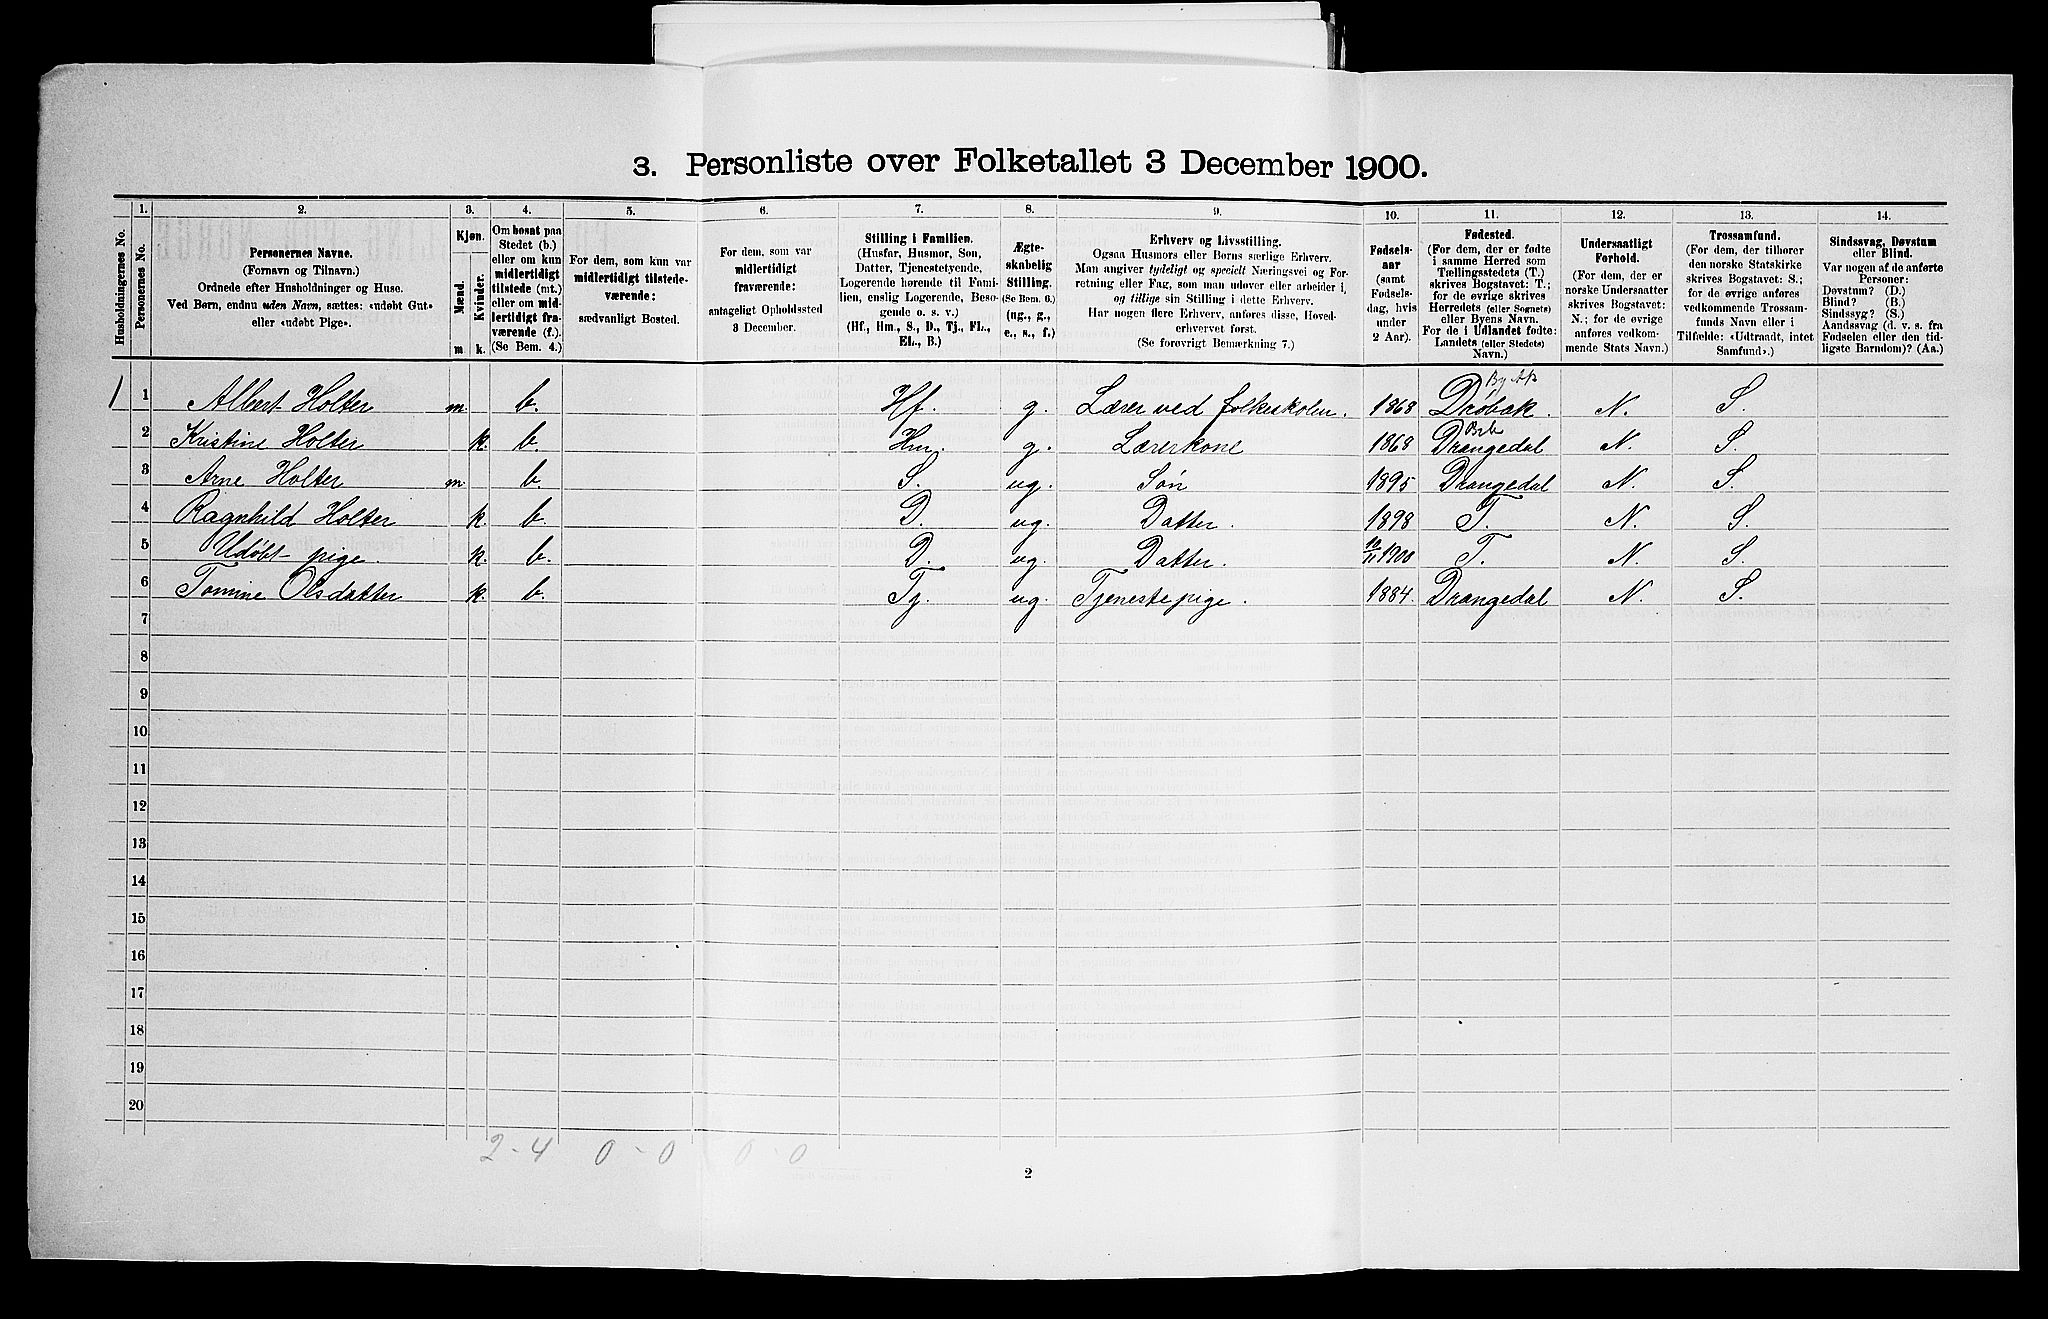 3. Personliste over Folketallet 3 December 1900.
1. 2. 3. 4. 5. 6. 7. 8. 9. 10. 11. 12. 13. 14.
Husholdningernes No.
Personernes No.
Personernes Navne.
(Fornavn og Tilnavn.)
Ordnede efter Husholdninger og Huse.
Ved Børn, endnu uden Navn, sættes: «udøbt Gut»
eller «udøbt Pige».
Kjøn.
Mænd.
Kvinder.
m k.
Om bosat paa
Stedet (b.)
eller om kun
midlertidigt
tilstede (mt.)
eller om mid-
lertidigt fra-
værende (f.)
(Se Bem. 4.)
For dem, som kun var
midlertidigt tilstede-
værende:
sædvanligt Bosted.
For dem, som var
midlertidigt
fraværende:
antageligt Opholdssted
3 December.
Stilling i Familien.
(Husfar, Husmor, Søn,
Datter, Tjenestetyende,
Logerende hørende til Fami-
lien, enslig Logerende, Besø-
gende o. s. v.)
(Hf., Hm., S., D., Tj., FL.,
EL., B.)
Ægte-
skabelig
Stilling.
(Se Bem. 6.)
(ug., g.,
e., s., f.)
Erhverv og Livsstilling.
Ogsaa Husmors eller Børns særlige Erhverv.
Man angiver tydeligt og specielt Næringsvei og For-
retning eller Fag, som man udøver eller arbeider i,
og tillige sin Stilling i dette Erhverv.
Har nogen flere Erhverv, anføres disse, Hoved-
erhvervet først.
(Se forøvrigt Bemærkning 7.)
Fødsels-
aar
(samt
Fødsels-
dag, hvis
under
2 Aar).
Fødested.
(For dem, der er fødte
i samme Herred som
Tællingsstedets (T.)
skrives Bogstavet: T.;
for de øvrige skrives
Herredets (eller Sognets)
eller Byens Navn.
For de i Udlandet fødte:
Landets (eller Stedets)
Navn.)
Undersaatligt
Forhold.
(For dem, der er
norske Undersaatter
skrives Bogstavet:
N.; for de øvrige
anføres vedkom-
mende Stats Navn.)
Trossamfund.
(For dem, der tilhører
den norske Statskirke
skrives Bogstavet: S.;
for de øvrige anføres
vedkommende Trossam-
funds Navn eller i
Tilfælde: «Udtraadt, intet
Samfund».)
Sindssvag, Døvstum
eller Blind.
Var nogen af de anførte
Personer:
Døvstum? (D.)
Blind? (B.)
Sindssyg? (S.)
Aandssvag (d. v. s. fra
Fødselen eller den tid-
ligste Barndom)? (Aa.)
1 1 Albert Holter m. b. Hf. g. Lærer ved folkeskolen. 1868 Drøbak. N. S.
2 Kristine Holter k. b. Hm. g. Lærerkone 1868 Drangedal N. S.
3 Arne Holter m. b. S. ug. Søn 1895 Drangedal N. S.
4 Ragnhild Holter k. b. D. ug. Datter. 1898 T. N. S.
5 Udøbt pige. k. b. D. ug. Datter. 10/11 1900 T. N. S.
6 Tomine Olsdatter k. b. Tj. ug. Tjenestepige. 1884. Drangedal N. S.
7
8
9
10
11
12
13
14
15
16
17
18
19
20
2-4 0-0 0-0
2